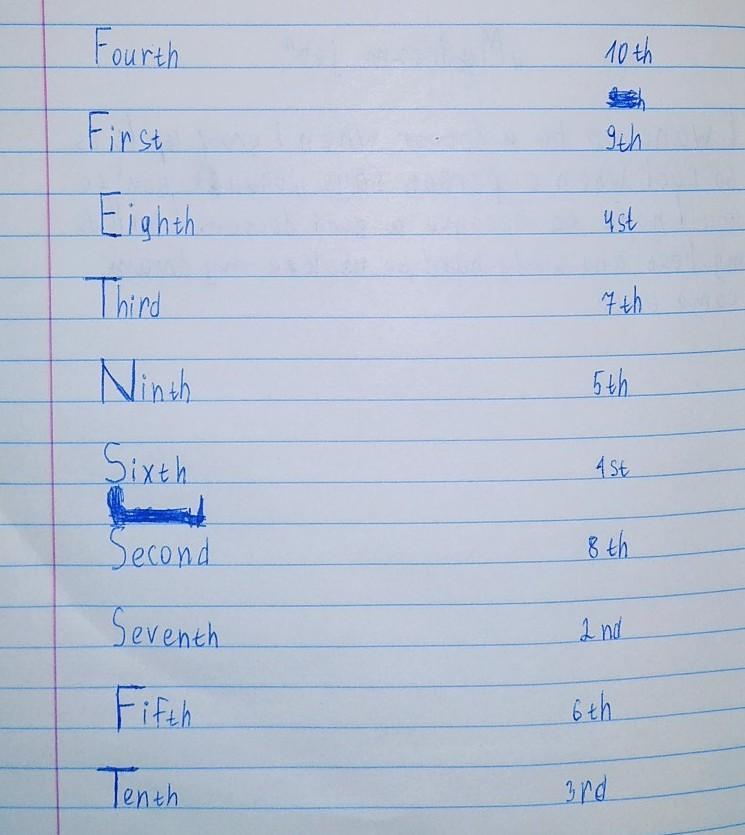 Fourth 10th
First 9th
Eighth 4st
Third 7th
Ninth 5th
Sixth 1st
Second 8th
Seventh 2nd
Fifth 6th
Tenth 3rd